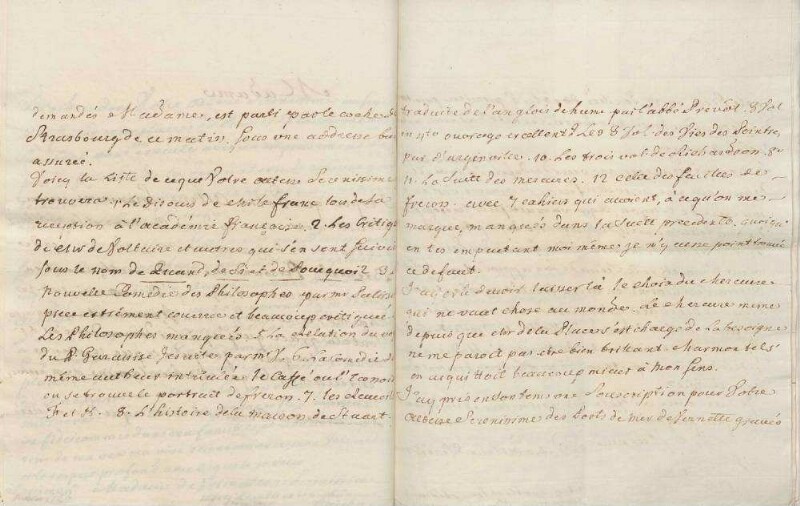 demandés a Madame, est parti par le coche de
Strasbourg de ce matin, sous une addresse bien
assurée.
Voicy la liste de ce que Votre altesse Serenissime
trouvera 1. Le Discours de Mr le franc lors de sa
reception à l'académie françoise. 2. Les Critiques
de Mr de Voltaire et autres qui s'en sont suivies
sous le nom de Quand, de Si et de Pourquoi? 3.
nouvelle Comédie des Philosophes par Mr Palissot
piece extrémement courrue et beaucoup critiquée
Les Philosophes manqués. 5 La relation du
du P. Garassise Jesuite par Mr 6. La Comédie du
même autheur intitulée le Caffé ou l'Ecossoise
ou se trouve le portrait de freron. 7. les
F. et M. 8. L'histoire de la maison de Stuart
traduite de l'anglois de hume par l'abbé Prevôt. 3 Vol
in 4to ouvrage excellent. 9 Les 3 Vol. des Vies des Peintres
par d'argenville. 10. Les trois vol de Richardson 8o
11. La suite des mercures. 12 celle des feuilles de
freron avec 7 cahiers qui avoient, à ce qu'on me
marque, manquées dans la suite precedente. quoiqu'
en les empaquetant moi même je n'y eusse point trouvé
ce defaut.
J'ai crû devoir laisser là le choix du Mercure
qui ne vaut chose au monde. Le Mercure meme
depuis que Mr de la Place s'est chargé de la besogne
ne me paroit pas etre bien brillant. Marmontel s'
en acquittoit beaucoup mieux à mon sens.
J'ay pris en son tems une Souscription pour Votre
altesse Serenissime des Ports de mer de Vernette gravés